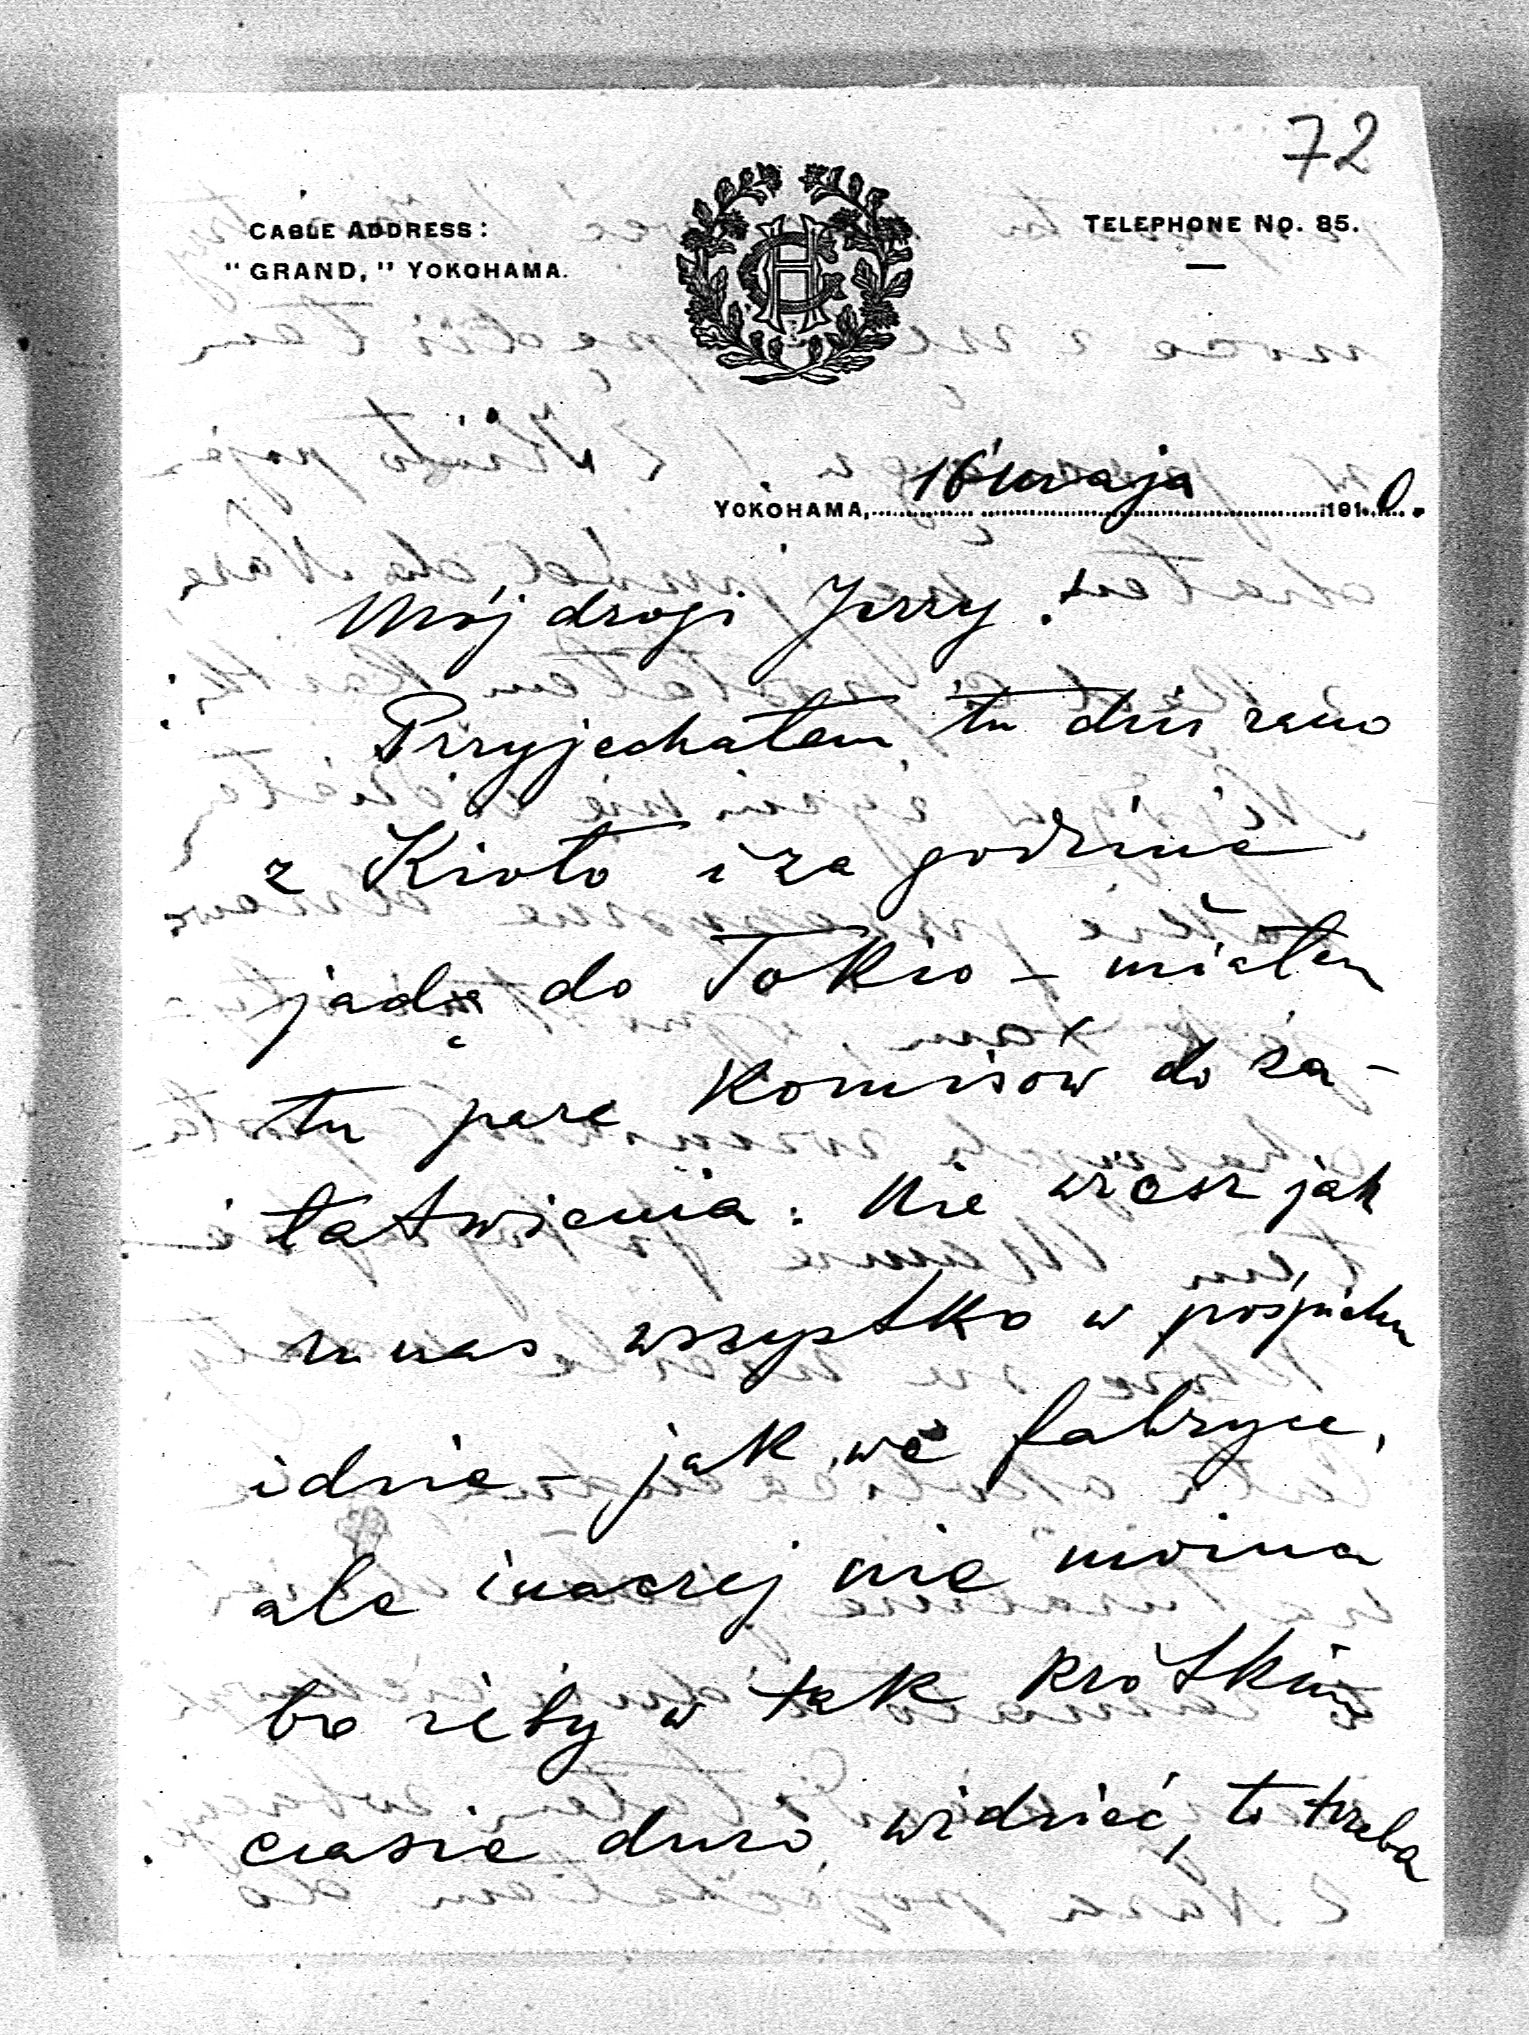 72
CABLE ADDRESS:
"GRAND," YOKOHAMA.
TELEPHONE NO. 85.
YOKOHAMA, 16 maja 1910.
Mój drogi Jerzy!
Przyjechałem tu dziś rano
z Kioto i za godzinę
jadę do Tokio – miałem
tu parę komisów do za-
łatwienia. Nie wiesz jak
u nas wszystko w pośpiechu
idzie – jak we fabryce,
ale inaczej nie można
bo żeby w tak krótkim
czasie dużo widzieć, to trzeba